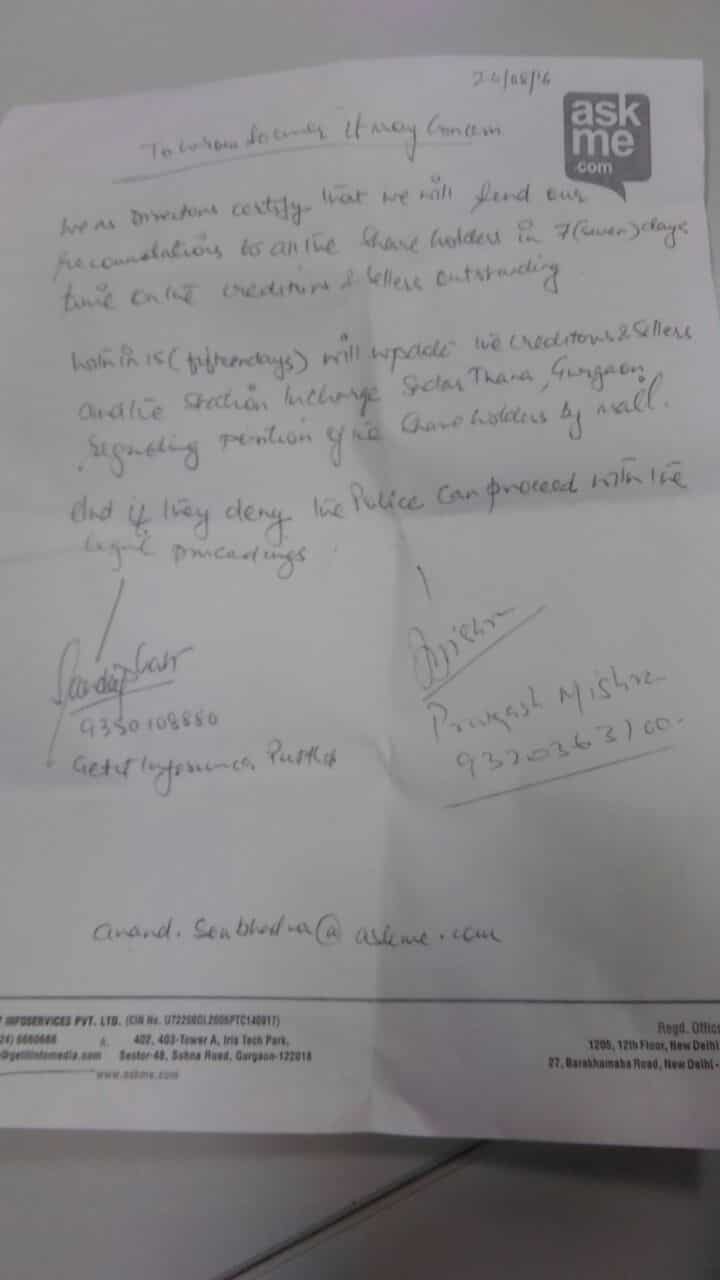 ask
me
.com
To whom so ever it may Concern
We as Directors certify that we will send our
to all the Share holders in 7 (seven) days
time on the creditors & sellers outstanding
within 15 (fifteen days) will update the creditors & sellers
and the Station Incharge Sadar Thana, Gurgaon
regarding of the Share holders by mail.
And if they deny the Police can proceed with the
legal proceedings
Mishra
Prakash Mishra
Getit Infoservices Pvt Ltd
@ askme.com
INFOSERVICES PVT. LTD. (CIN No.
402, 403-Tower A, Iris Tech Park,
Sector-48, Sohna Road, Gurgaon-122018
www.askme.com
Regd. Office
1205, 12th Floor, New Delhi
27, Barakhamba Road, New Delhi -